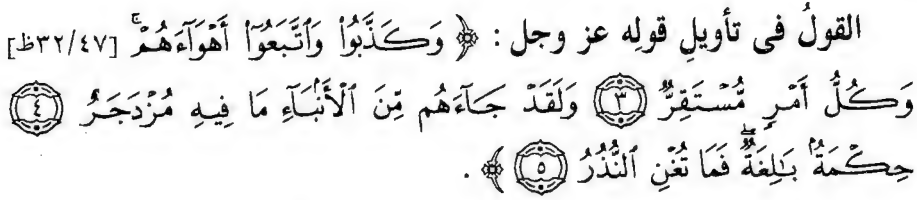 القولُ فى تأويلِ قولِه عز وجل : ﴿ وَكَذَّبُوا۟ وَٱتَّبَعُوٓا۟ أَهْوَآءَهُمْ ۚ [٣٢/٤٧ظ]
وَكُلُّ أَمْرٍ مُّسْتَقِرٌّ ﴿٣﴾ وَلَقَدْ جَآءَهُم مِّنَ ٱلْأَنۢبَآءِ مَا فِيهِ مُزْدَجَرٌ ﴿٤﴾
حِكْمَةٌۢ بَٰلِغَةٌ ۖ فَمَا تُغْنِ ٱلنُّذُرُ ﴿٥﴾ ﴾ .